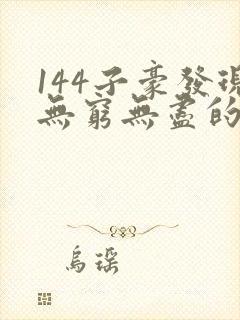 144子豪發現
無窮無盡的
烏瑈